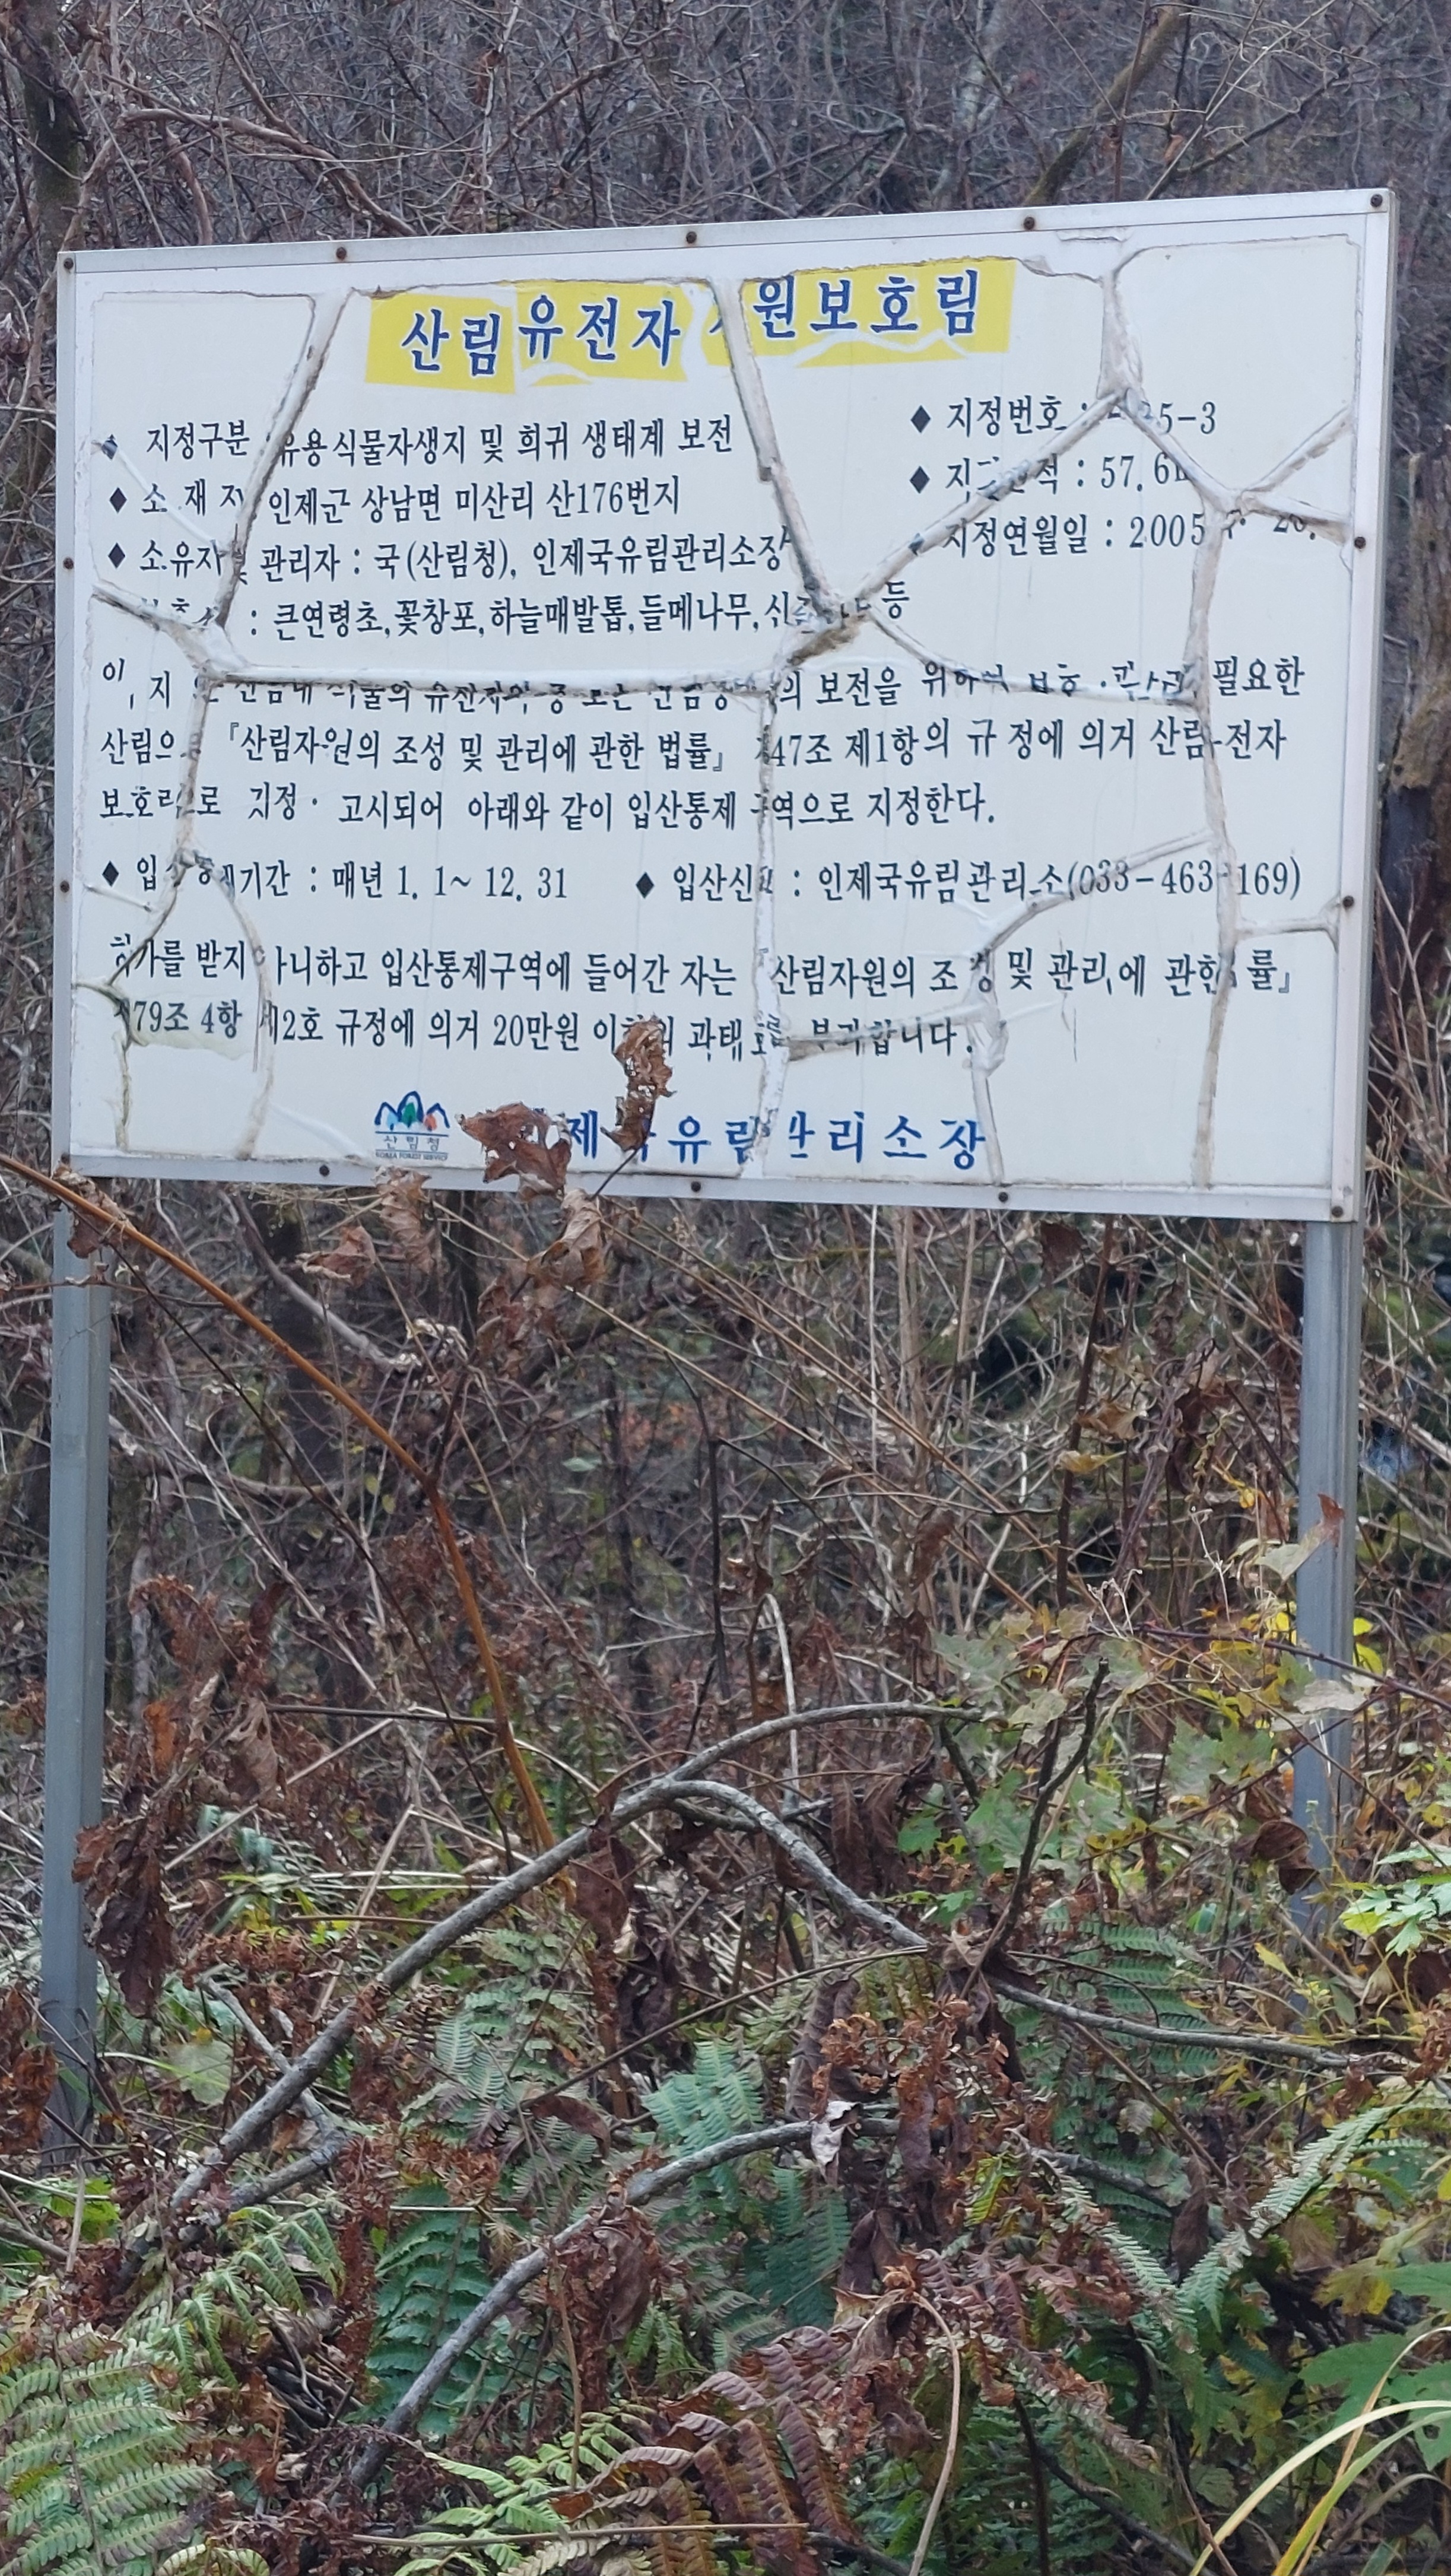 산림유전자 원보호림
◆ 지정구분 유용식물자생지 및 희귀 생태계 보전
◆ 지정번호 : 5-3
◆ 소재지 인제군 상남면 미산리 산176번지
◆ : 57.61
◆ 소유자 및 관리자 : 국(산림청), 인제국유림관리소장
◆ 지정연월일 : 2005
: 큰연령초,꽃창포,하늘매발톱,들메나무, 등
보전을 필요한
『산림자원의 조성 및 관리에 관한 법률』 47조 제1항의 규정에 의거 산림 전자
지정· 고시되어 아래와 같이 입산통제 역으로 지정한다.
◆ 기간 : 매년 1. 1~ 12. 31
◆ : 인제국유림관리소(033-463- 169)
받지 아니하고 입산통제구역에 들어간 자는 『산림자원의 조성 및 관리에 관한 률』
79조 4항 2호 규정에 의거 20만원 부과합니다.
산림청
KOREA FOREST SERVICE
제 유림관리소장